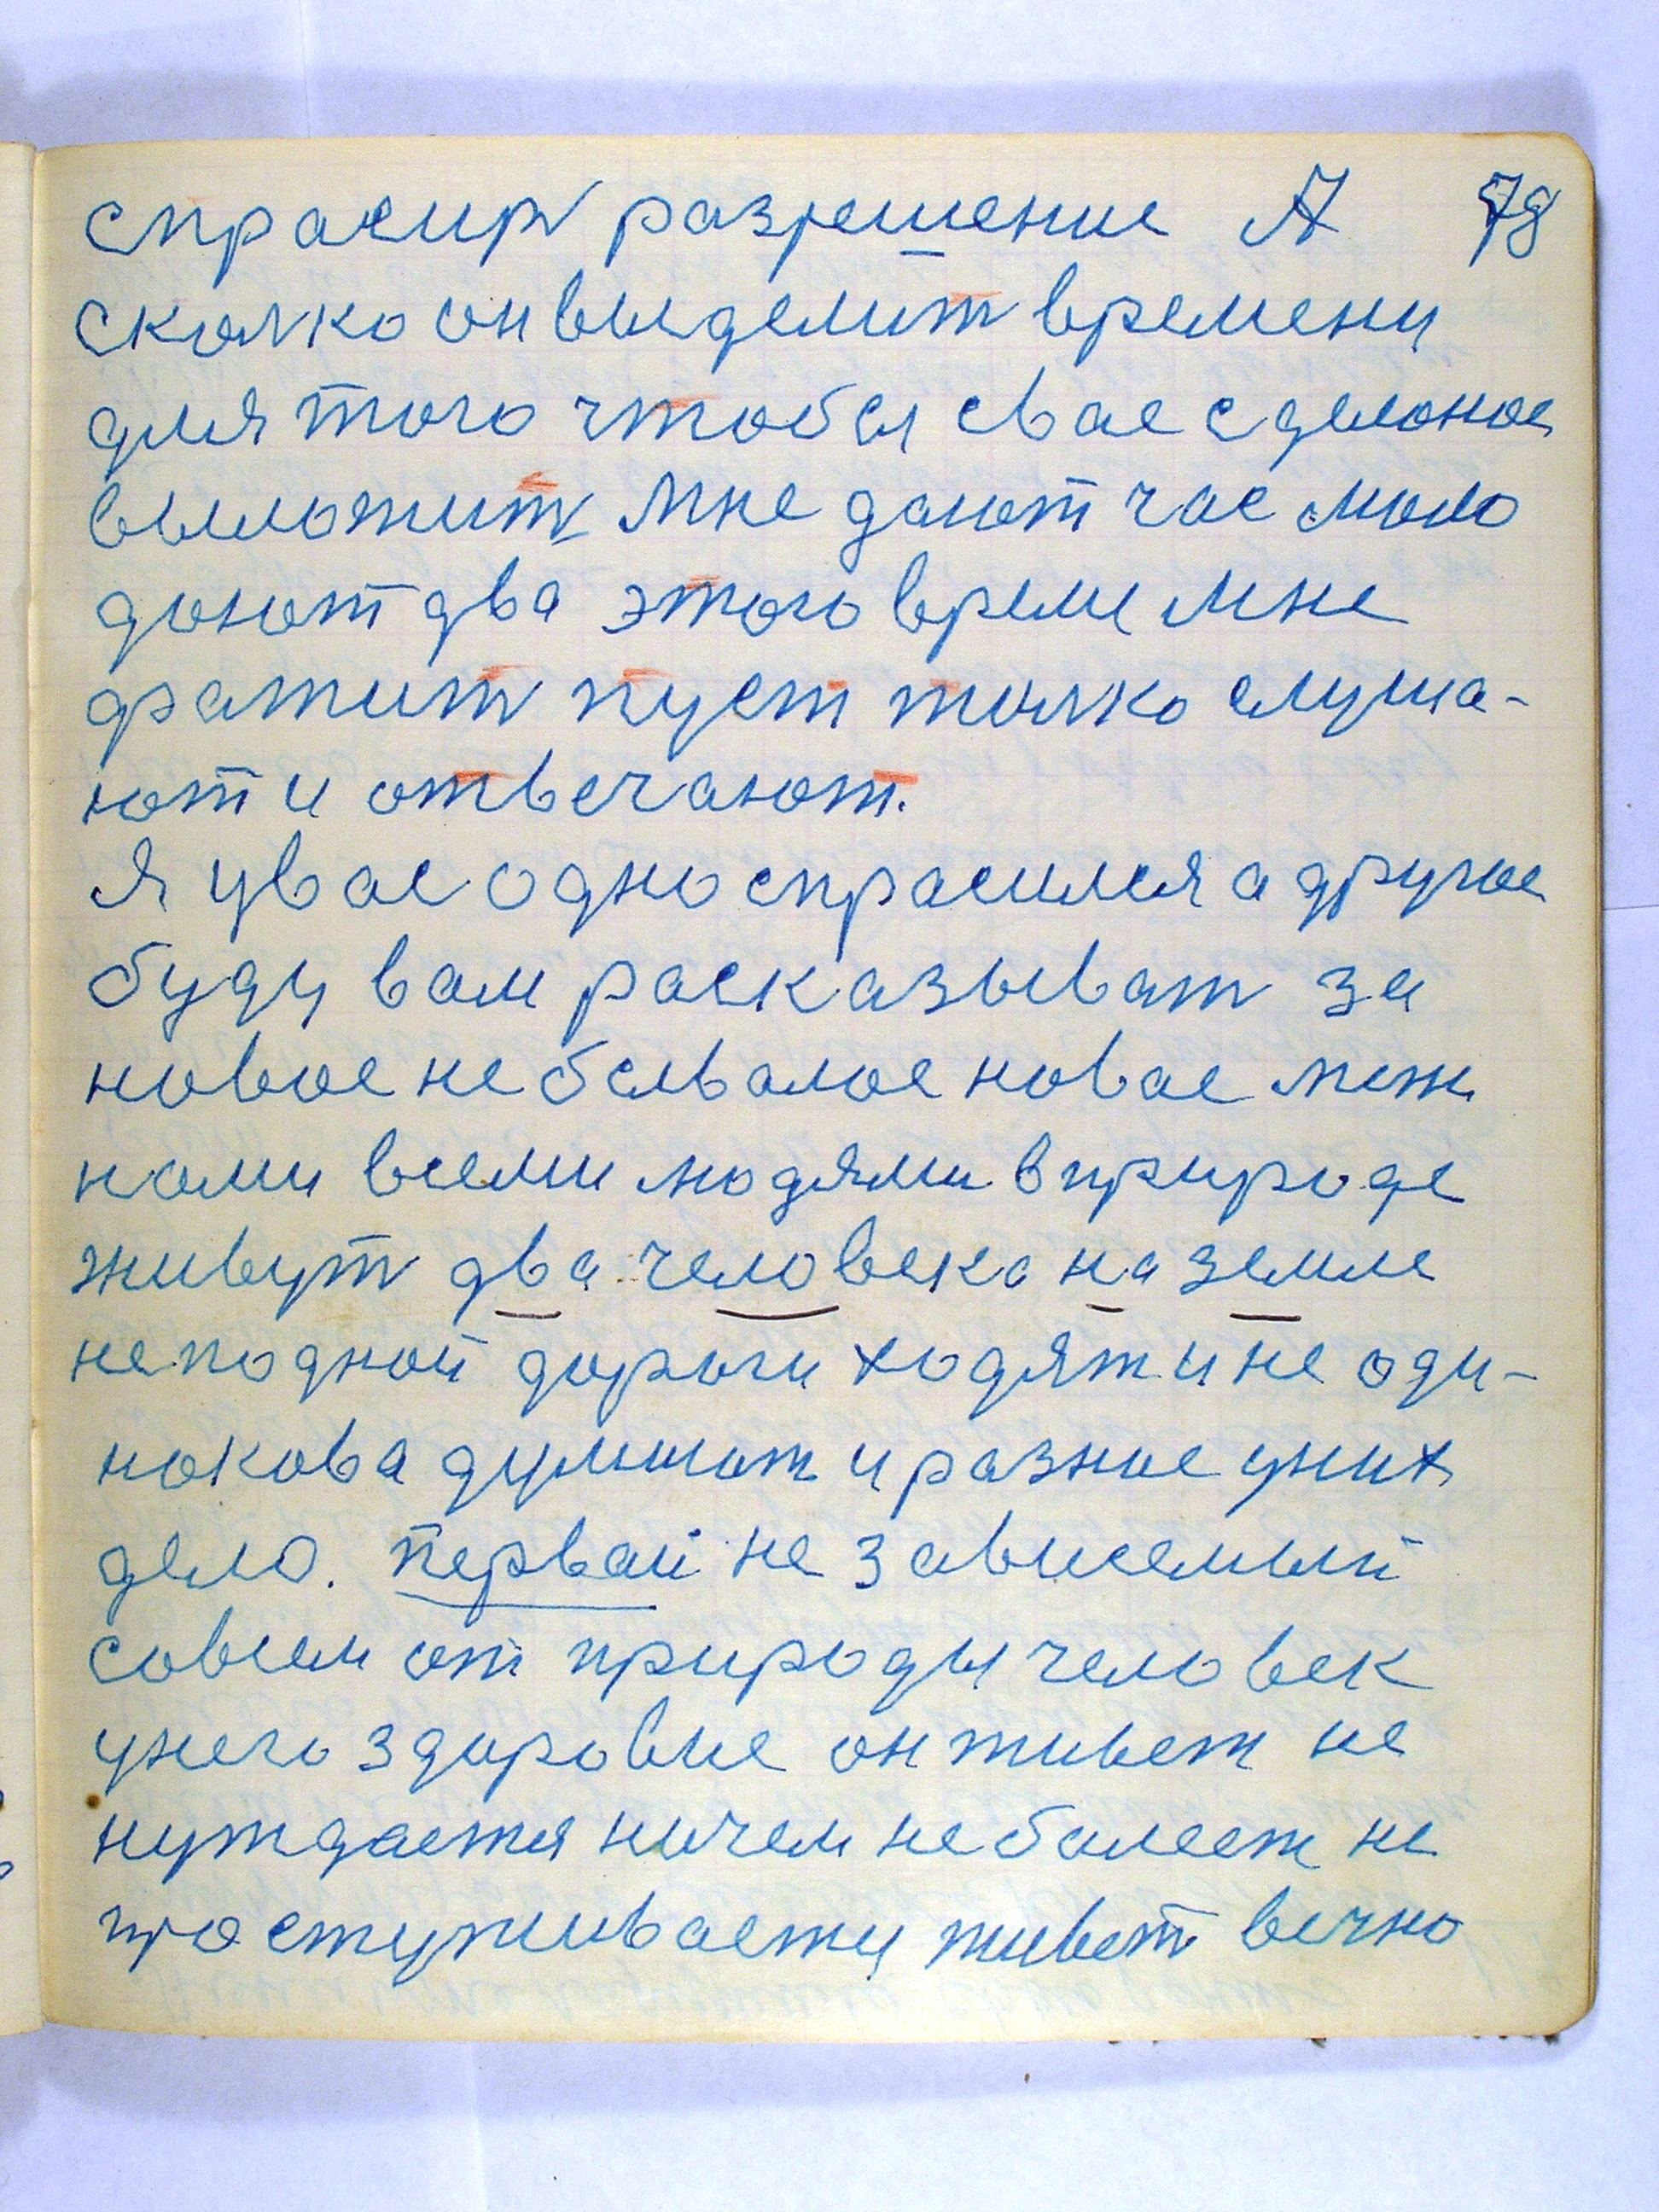 спрасир разрешение А 78
сколко он выделит времени
для того чтобы свае сделоное
выложит мне дают час мало
дают два этого време мне
фатит пуст толко слуша-
ют и отвечают.
Я у вас одно спрасился а другое
буду вам расказыват за
новое не бывалое новае меж
нами всеми людями в природе
живут два человека на земле
неподной дороги ходят и не оди-
накова думают и разное у них
дело. Первай не зависемый
совсем от природы человек
у него здоровие он живет не
нуждается ничем не балеет не
простуживаеты живет вечно